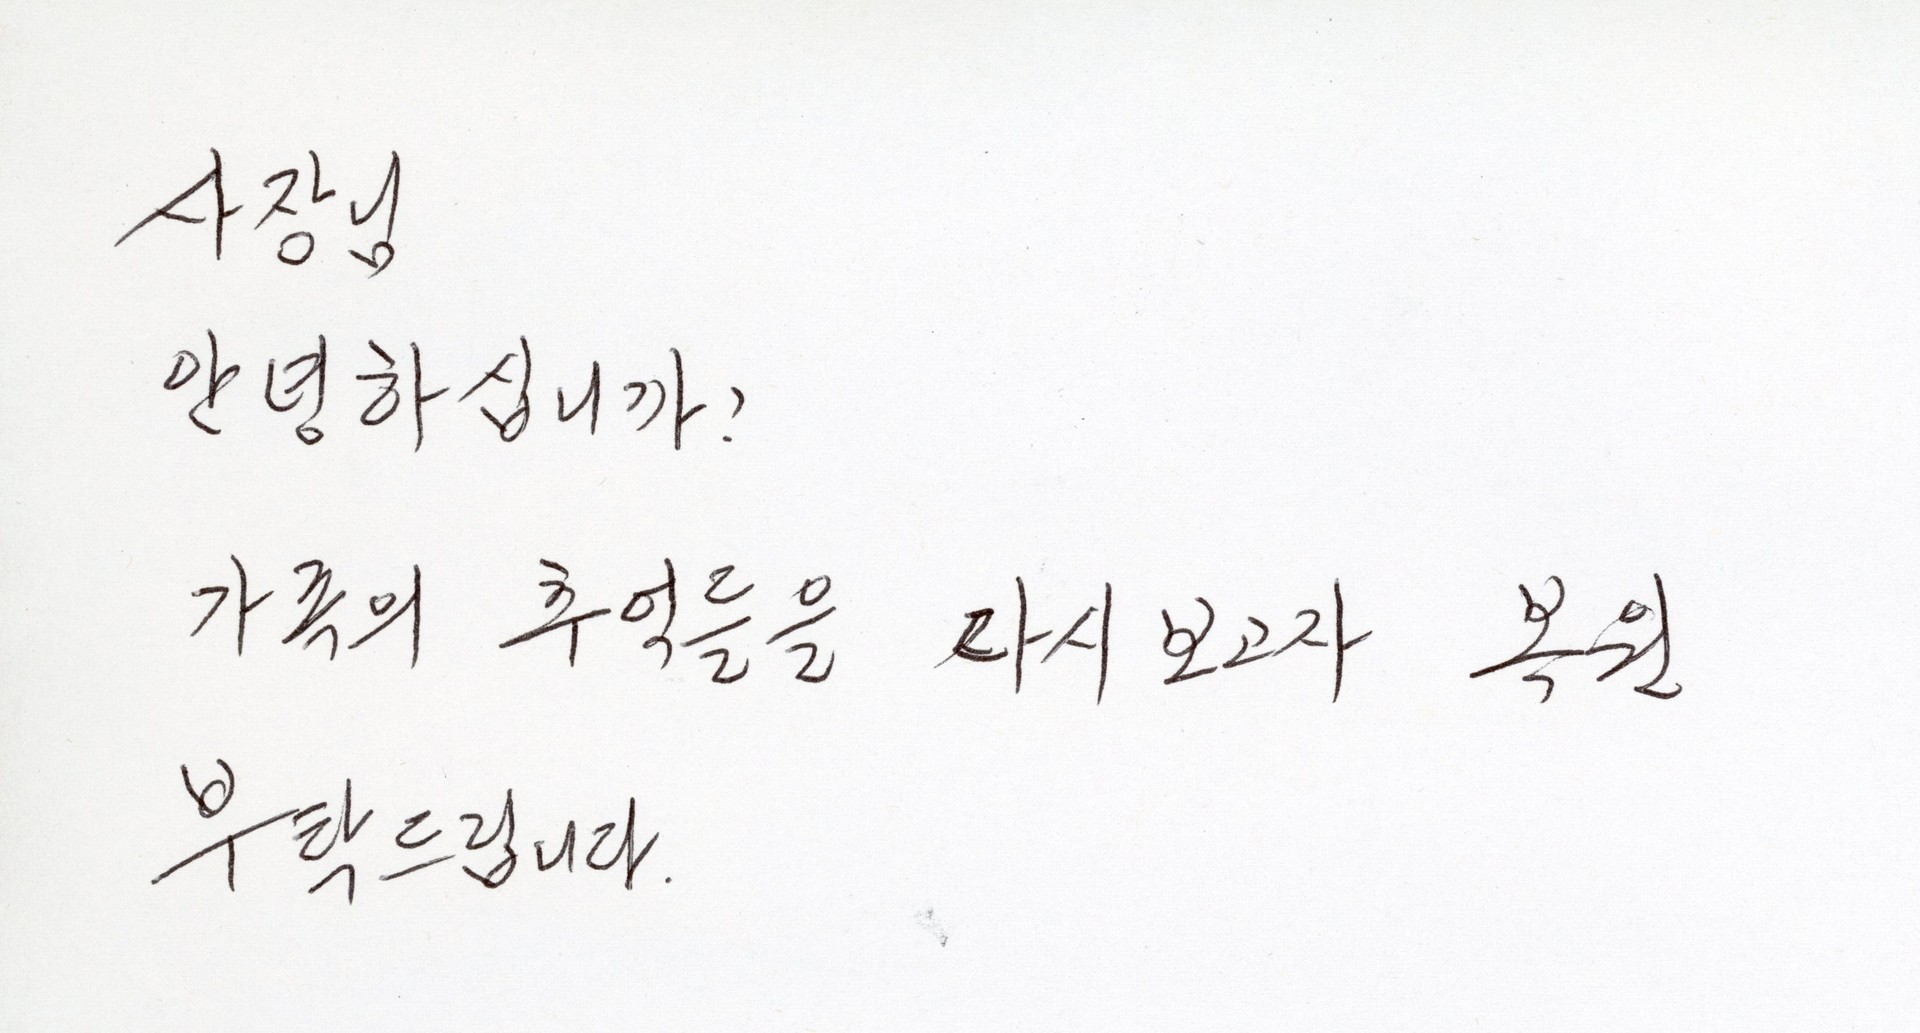 사장님
안녕하십니까?
가족의 추억들을 다시보고자 복원
부탁드립니다.